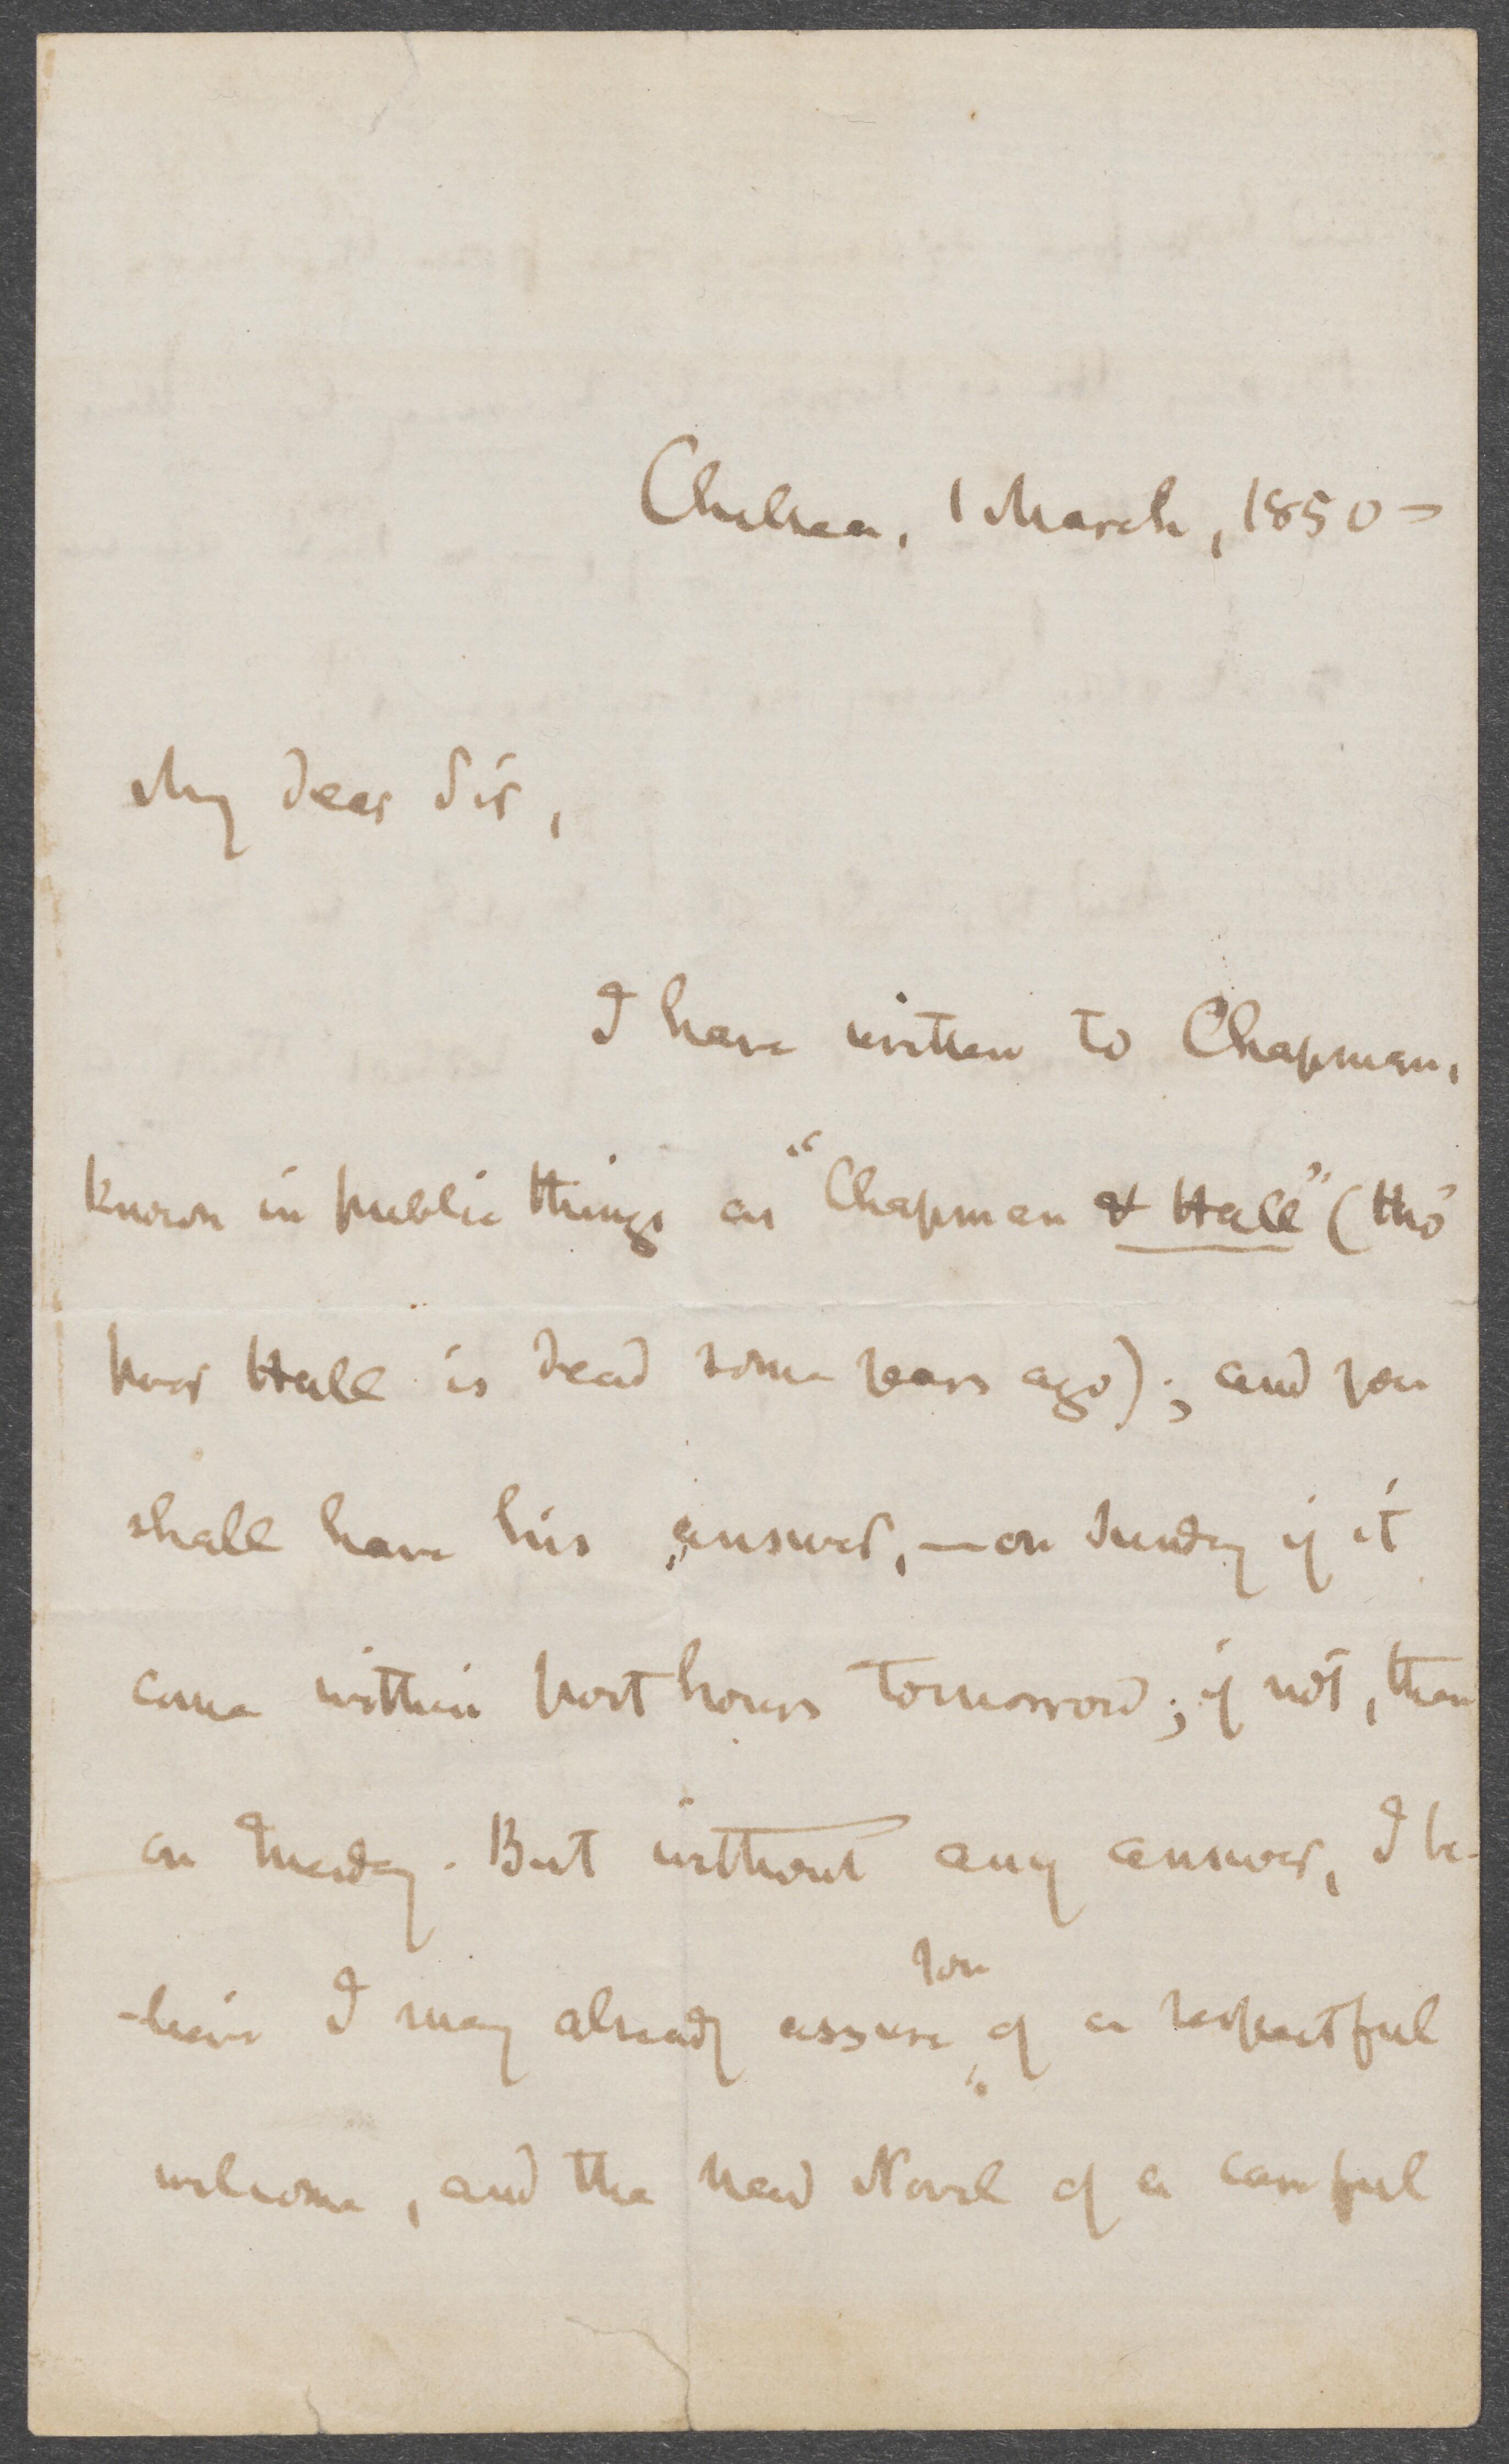 Chelsea, 1 March, 1850 =
My dear Sir,
I have written to Chapman,
known in public things as "Chapman & Hall" (tho'
poor Hall is dead some years ago); and you
shall have his answer, — on Sunday if it
come within post hours tomorrow; if not, then
on Tuesday. But without any answer, I be-
-lieve I may already assure you of a respectful
welcome, and the new Novel of a careful